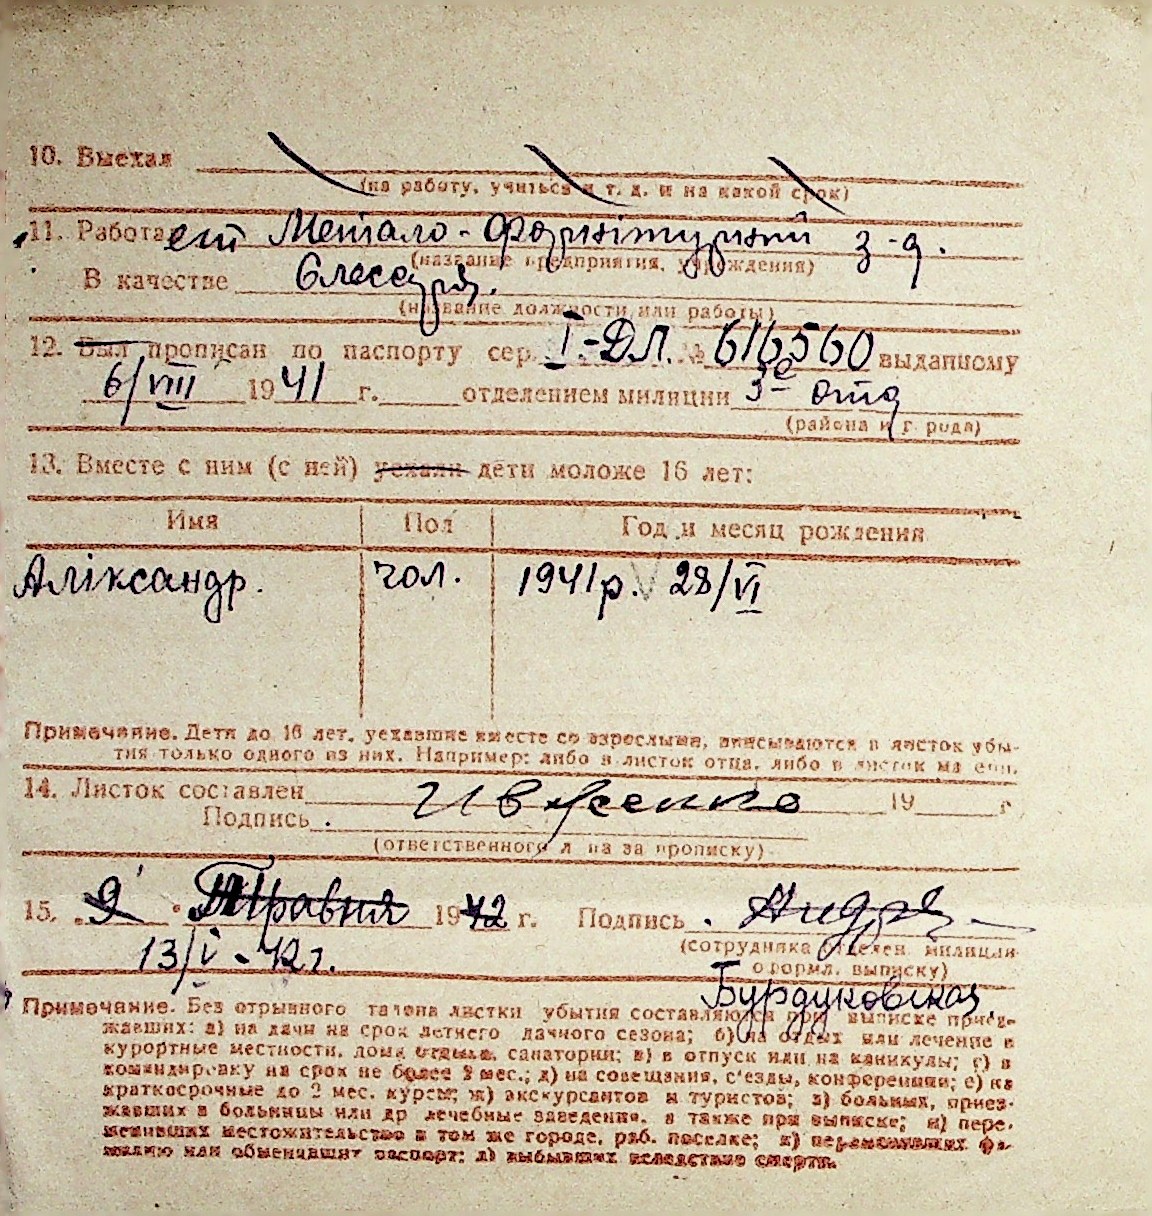 10. Выехал
(на работу, учиться и т. д. и на какой срок)
11. Работает Метало-Фурнітурний з-д.
(название предприятия, учреждения)
В качестве Слесаря.
(название должности или работы)
12. Был прописан по паспорту сер. I-ДЛ. № 616560 выданному
6/VIII 1941 г. отделением милиции 3е отд
(района и г. рода)
13. Вместе с ним (с ней) уехали дети моложе 16 лет:
Имя Пол Год и месяц рождения
Аліксандр. чол. 1941 р. 28/VI
Примечание. Дети до 16 лет, уехавшие вместе со взрослыми, вписываются в листок убы-
тия только одного из них. Например: либо в листок отца, либо в листок матери.
14. Листок составлен 19 г
Подпись
(ответственного л на за прописку)
15. 9 Травня 1942 г. Подпись
13/V-42 г.
(сотрудника отделен. милиции
оформл. выписку)
Бурдуковская
Примечание. Без отрывного талона листки убытия составляются при выписке приез-
жавших: а) на дачи на срок летнего дачного сезона; б) на отдых или лечение в
курортные местности, дома отдыха, санатории; в) в отпуск или на каникулы; г) в
командировку на срок не более 2 мес.; д) на совещания, с'езды, конференции; е) на
краткосрочные до 2 мес. курсы; ж) экскурсантов и туристов; з) больных, приез-
жавших в больницы или др лечебные заведения, а также при выписке; и) пере-
менивших местожительство в том же городе, раб. поселке; к) переменивших фа-
милию или обменявших паспорт; л) выбывших вследствие смерти.